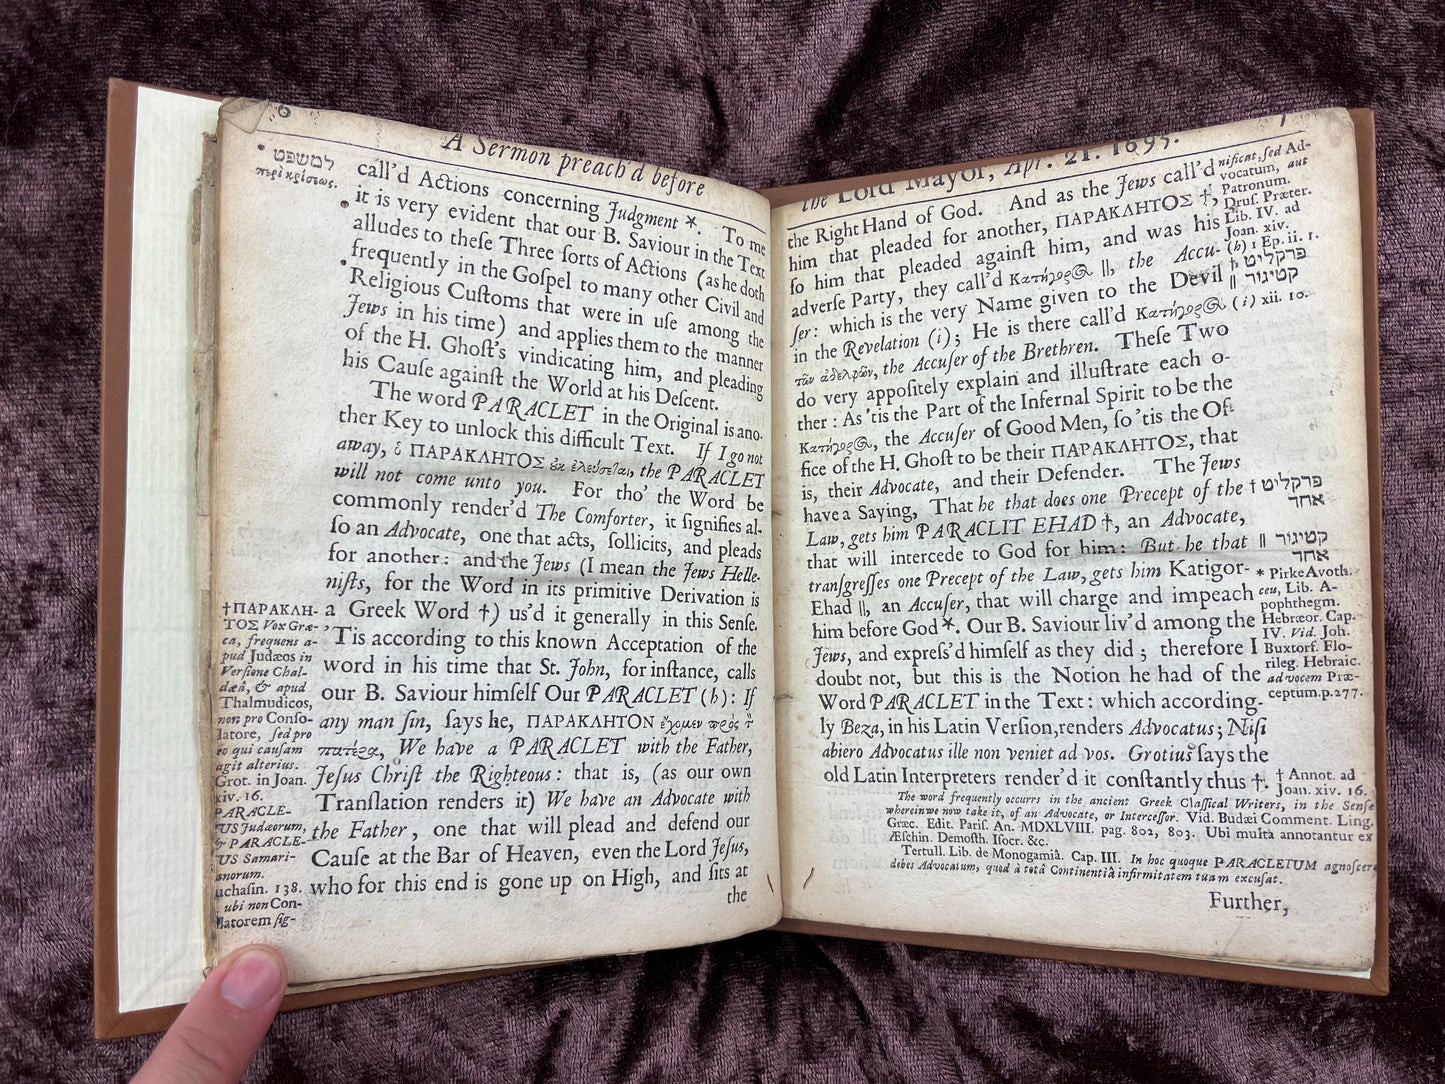 6
A Sermon preach'd before
* למשפט
περὶ κρίσεως.
call'd Actions concerning Judgment *. To me
it is very evident that our B. Saviour in the Text
alludes to theſe Three ſorts of Actions (as he doth
frequently in the Goſpel to many other Civil and
Religious Cuſtoms that were in uſe among the
Jews in his time) and applies them to the manner
of the H. Ghoſt's vindicating him, and pleading
his Cauſe against the World at his Deſcent.
The word PARACLET in the Original is ano-
ther Key to unlock this difficult Text. If I go not
away, ὁ ΠΑΡΑΚΛΗΤΟΣ ἐκ ἐλεύσεται, the PARACLET
will not come unto you. For tho' the Word be
commonly render'd The Comforter, it ſignifies al-
ſo an Advocate, one that acts, ſollicits, and pleads
for another: and the Jews (I mean the Jews Helle-
niſts, for the Word in its primitive Derivation is
a Greek Word †) us'd it generally in this Senſe.
'Tis according to this known Acceptation of the
word in his time that St. John, for inſtance, calls
our B. Saviour himſelf Our PARACLET (h): If
any man ſin, ſays he, ΠΑΡΑΚΛΗΤΟΝ ἔχομεν πρὸς τ
πατέρα, We have a PARACLET with the Father,
Jeſus Chriſt the Righteous: that is, (as our own
Tranſlation renders it) We have an Advocate with
the Father, one that will plead and defend our
Cauſe at the Bar of Heaven, even the Lord Jeſus,
who for this end is gone up on High, and ſits at
the
†ΠΑΡΑΚΛΗ-
ΤΟΣ Vox Græ-
ca, frequens a-
pud Judæos in
Verſione Chal-
dæâ, & apud
Thalmudicos,
non pro Conſo-
latore, ſed pro
eo qui cauſam
agit alterius.
Grot. in Joan.
xiv. 16.
PARACLE-
TUS Judæorum,
& PARACLE-
TUS Samari-
anorum.
Juchaſin. 138.
ubi non Con-
ſolatorem ſig-
7
the Lord Mayor, Apr. 21. 1695.
the Right Hand of God. And as the Jews call'd
him that pleaded for another, ΠΑΡΑΚΛΗΤΟΣ †,
ſo him that pleaded againſt him, and was his
adverſe Party, they call'd Κατήγορ@ ||, the Accu-
ſer: which is the very Name given to the Devil
in the Revelation (i); He is there call'd Κατήγορ@
τῶν ἀδελφῶν, the Accuſer of the Brethren. Theſe Two
do very appoſitely explain and illuſtrate each o-
ther: As 'tis the Part of the Infernal Spirit to be the
Κατήγορ@, the Accuſer of Good Men, ſo 'tis the Of-
fice of the H. Ghoſt to be their ΠΑΡΑΚΛΗΤΟΣ, that
is, their Advocate, and their Defender. The Jews
have a Saying, That he that does one Precept of the
Law, gets him PARACLIT EHAD †, an Advocate,
that will intercede to God for him: But he that
tranſgreſſes one Precept of the Law, gets him Katigor-
Ehad ||, an Accuſer, that will charge and impeach
him before God *. Our B. Saviour liv'd among the
Jews, and expreſs'd himſelf as they did; therefore I
doubt not, but this is the Notion he had of the
Word PARACLET in the Text: which according-
ly Beza, in his Latin Verſion, renders Advocatus; Niſi
abiero Advocatus ille non veniet ad vos. Grotius ſays the
old Latin Interpreters render'd it conſtantly thus †.
nificat, ſed Ad-
vocatum, aut
Patronum.
Druſ. Præter.
Lib. IV. ad
Joan. xiv.
(h) 1 Ep. ii. 1.
† פרקליט
|| קטיגור
(i) xii. 10.
† פרקליט
אחד
|| קטיגור
אחד
* Pirke Avoth.
ceu, Lib. A-
pophthegm.
Hebræor. Cap.
IV. Vid. Joh.
Buxtorf. Flo-
rileg. Hebraic.
ad vocem Præ-
ceptum. p. 277.
† Annot. ad
Joan. xiv. 16.
The word frequently occurrs in the ancient Greek Claſſical Writers, in the Senſe
wherein we now take it, of an Advocate, or Interceſſor. Vid. Budæi Comment. Ling.
Græc. Edit. Pariſ. An. MDXLVIII. pag. 802, 803. Ubi multa annotantur ex
Æſchin. Demoſth. Iſocr. &c.
Tertull. Lib. de Monogamiâ. Cap. III. In hoc quoque PARACLETUM agnoſcere
debes Advocatum, quod à totâ Continentiâ infirmitatem tuam excuſat.
Further,